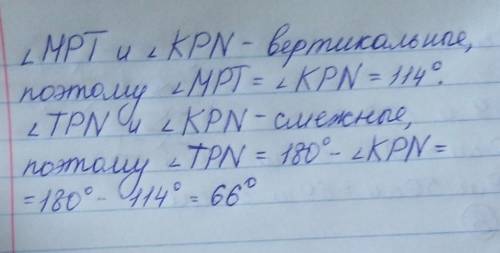 ∠MPT и ∠KPN - вертикальные,
поэтому ∠MPT = ∠KPN = 114°.
∠TPN и ∠KPN - смежные,
поэтому ∠TPN = 180° - ∠KPN =
= 180° - 114° = 66°